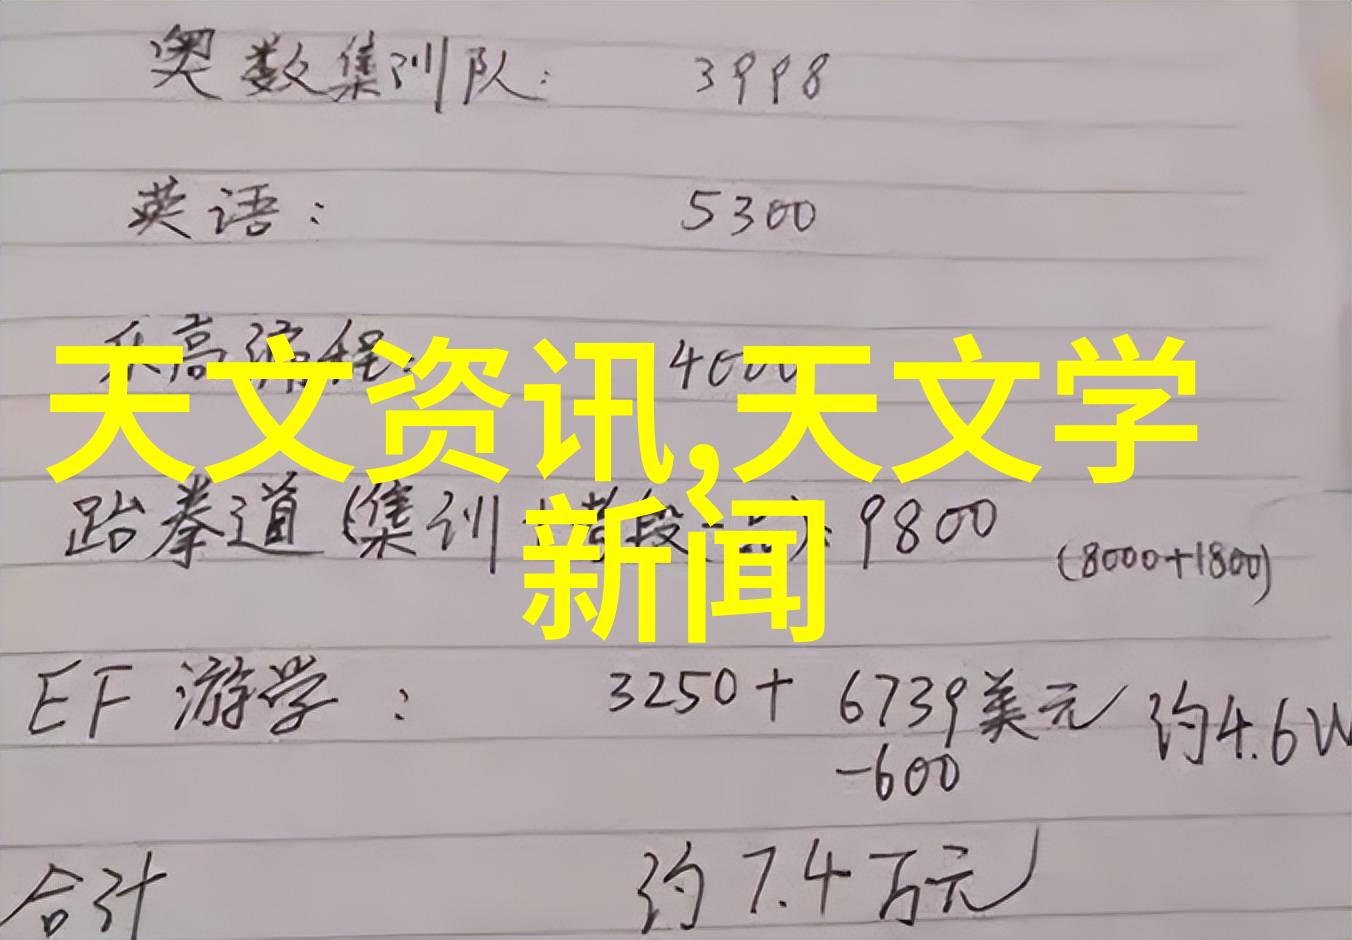 奥数集训队: 3998
英语: 5300
乐高编程: 4000
天文资讯,天文学
新闻
跆拳道(集训+考段 9800 (8000+1800)
EF 游学: 3250+ 6739美元 约4.6W
-600
合计 约7.4万元